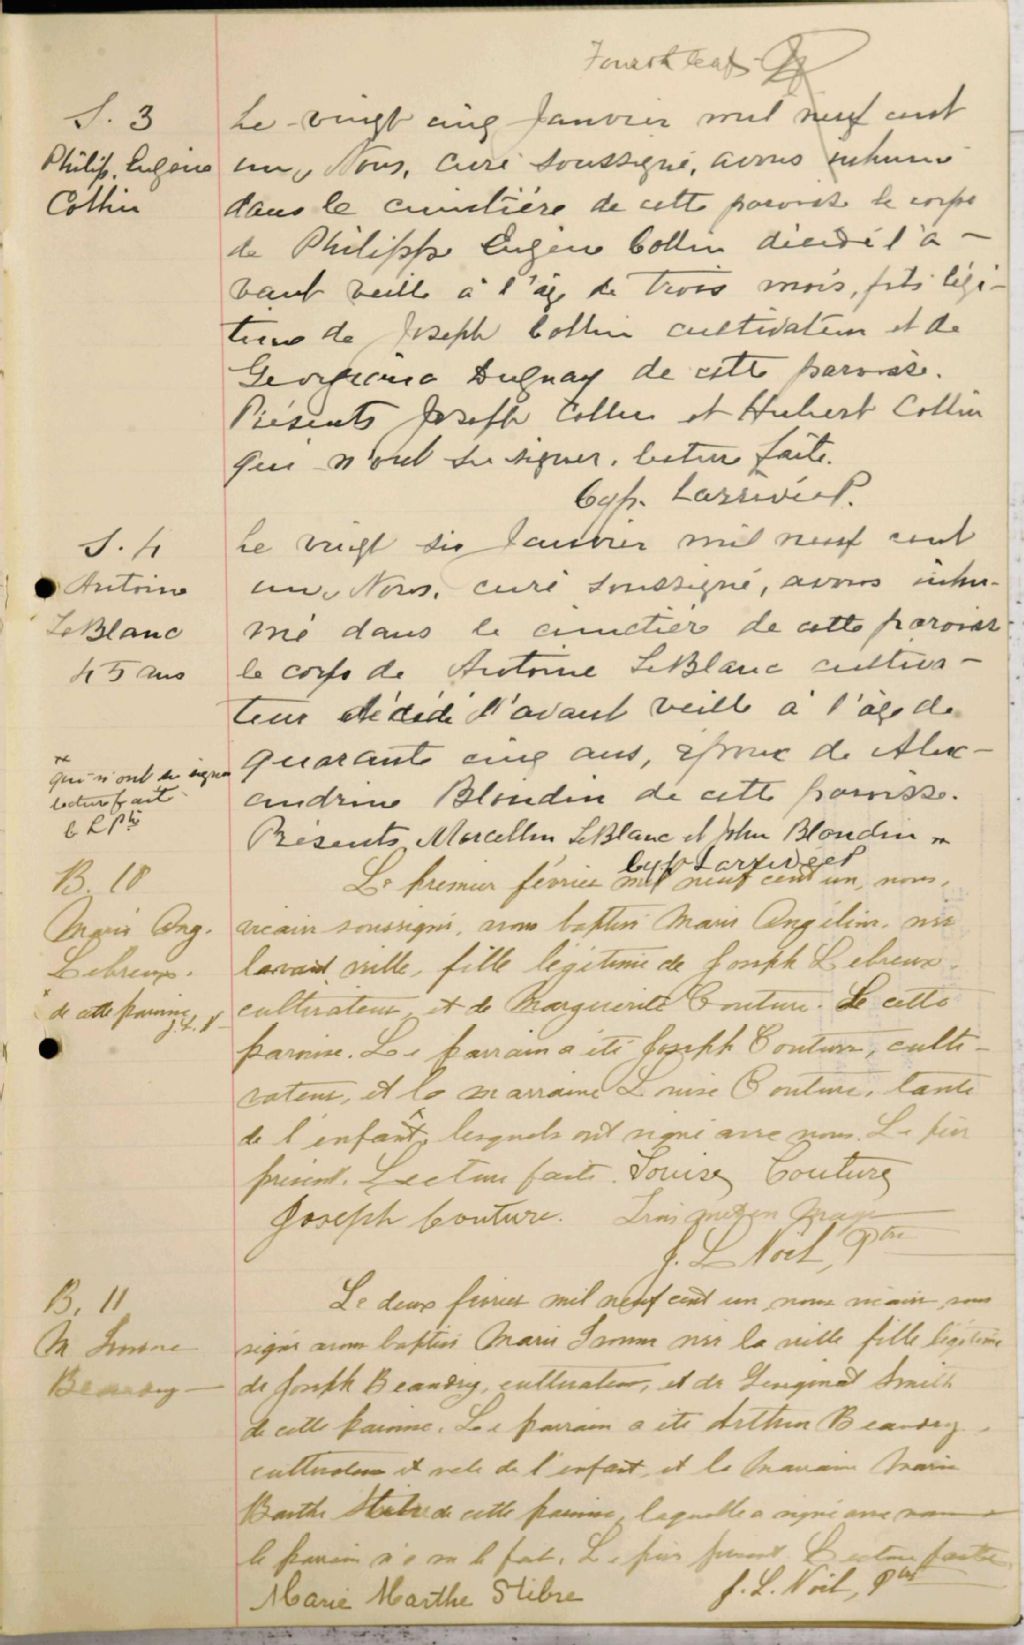 Fourth leaf
S. 3
Philip. Eugène
Collin
Le vingt cinq Janvier mil neuf cent
un, Nous, curé soussigné, avons inhumé
dans le cimetière de cette paroisse le corps
de Philippe Eugène Collin décédé l'a-
vant veille à l'âge de trois mois, fils légi-
time de Joseph Collin cultivateur et de
Georgiana Duguay de cette paroisse.
Présents Joseph Collin et Hubert Collin
qui n'ont su signer. lecture faite.
Cyp. Larrivée P.
S. 4
Antoine
LeBlanc
45 ans
Le vingt six Janvier mil neuf cent
un, Nous, curé soussigné, avons inhu-
mé dans le cimetière de cette paroisse
le corps de Antoine LeBlanc cultiva-
teur décédé l'avant veille à l'âge de
quarante cinq ans, époux de Alex-
andrine Blondin de cette paroisse.
Présents Marcellin LeBlanc et John Blondin
qui n'ont su signer
lecture faite
C L Ptre
Cyp Larrivée P
B. 10
Marie Ang.
Lebreux.
de cette paroisse
J. L. N
Le premier février mil neuf cent un, nous,
vicaire soussigné, avons baptisé Marie Angélina, née
lavant veille, fille légitime de Joseph Lebreux,
cultivateur, et de Marguerite Couture. De cette
paroisse. Le parrain a été Joseph Couture, culti-
vateur, et la marraine Louise Couture, tante
de l'enfant, lesquels ont signé avec nous. Le père
présent. Lecture faite. Louise Couture
Joseph Couture. Trois mots en marge
J. L. Noël, Ptre
B. 11
M
Beaudry
Le deux février mil neuf cent un, nous vicaire sous
signé avons baptisé Marie née la veille fille légitime
de Joseph Beaudry, cultivateur, et de Smith
de cette paroisse. Le parrain a été Arthur Beaudry,
cultivateur et oncle de l'enfant, et la marraine Marie
Marthe Stibre de cette paroisse, laquelle a signé avec nous
le parrain n'a su le fait. Le père présent. Lecture faite
Marie Marthe Stibre
J. L. Noël, Ptre